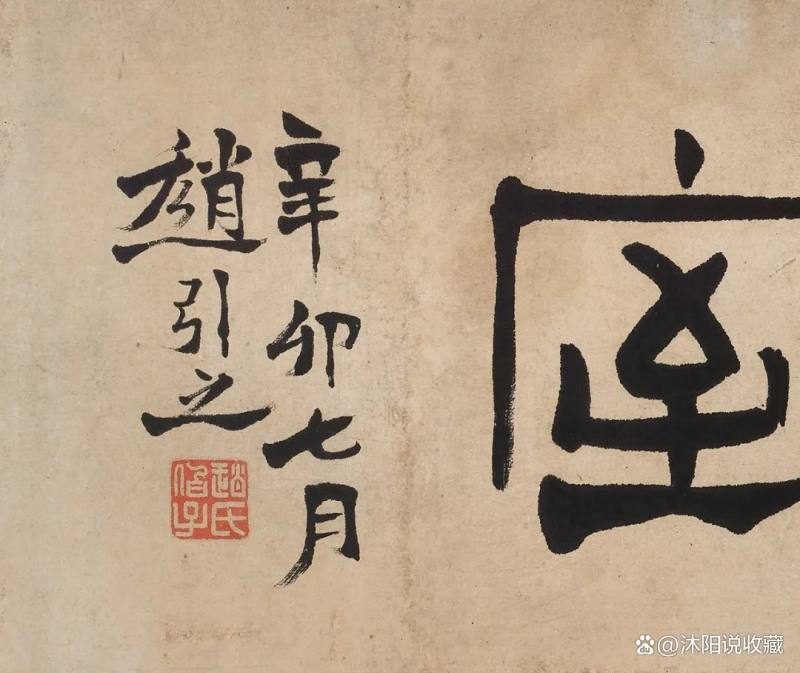 辛卯七月
趙引之
趙氏
@沐阳说收藏